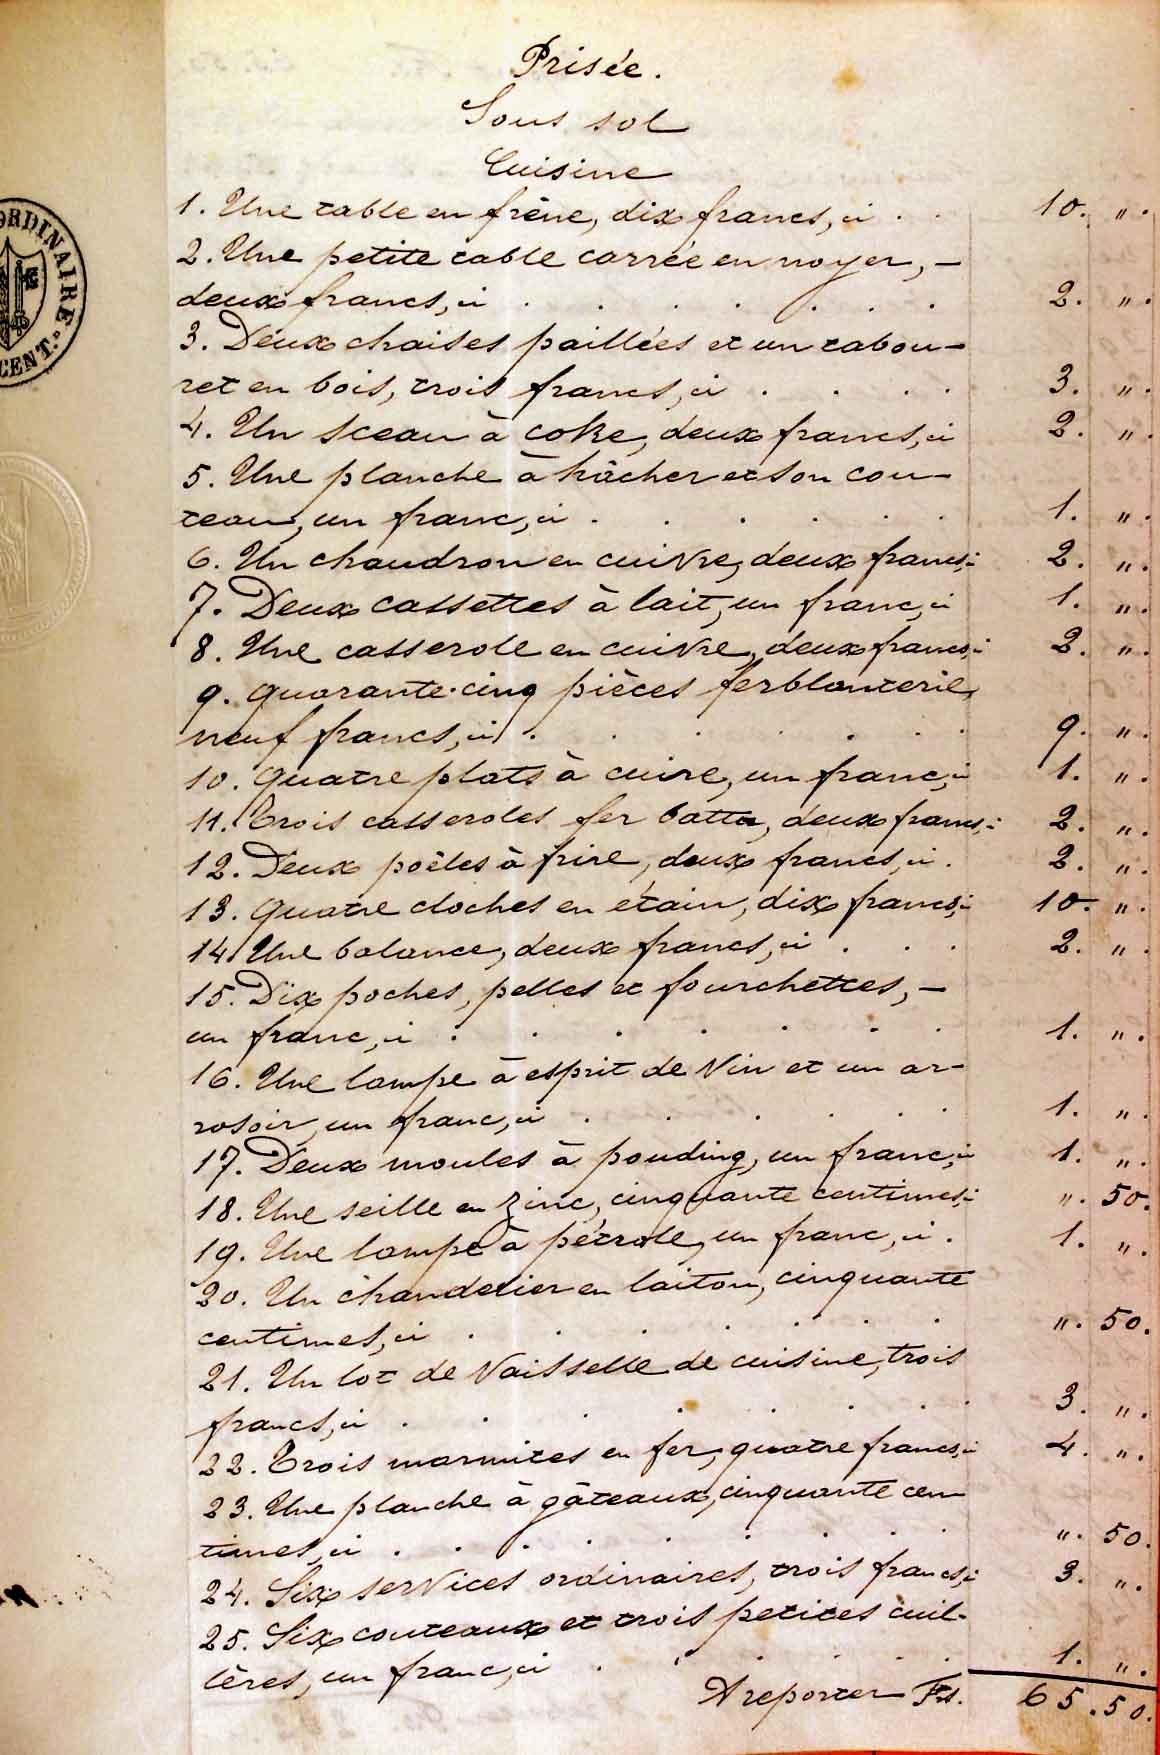 Prisée.
Sous sol
Cuisine
1. Une table en frêne, dix francs, ci . . 10. ".
2. Une petite table carrée en noyer, –
deux francs, ci . . . . . . 2. ".
3. Deux chaises paillées et un tabou-
ret en bois, trois francs, ci . . . . 3. ".
4. Un sceau à coke, deux francs, ci 2. ".
5. Une planche à hâcher et son cou-
teau, un franc, ci . . . . . . 1. ".
6. Un chaudron en cuivre, deux francs, ci 2. ".
7. Deux cassettes à lait, un franc, ci 1. ".
8. Une casserole en cuivre, deux francs, ci 2. ".
9. Quarante-cinq pièces ferblanterie,
neuf francs, ci . . . . . . 9. ".
10. Quatre plats à cuire, un franc, ci 1. ".
11. Trois casseroles fer battu, deux francs, ci 2. ".
12. Deux poêles à frire, deux francs, ci . 2. ".
13. Quatre cloches en étain, dix francs, ci 10. ".
14. Une balance, deux francs, ci . . . 2. ".
15. Dix poches, pelles et fourchettes, –
un franc, ci . . . . . . . 1. ".
16. Une lampe à esprit de vin et un ar-
rosoir, un franc, ci . . . . . 1. ".
17. Deux moules à pouding, un franc, ci 1. ".
18. Une seille en zinc, cinquante centimes, ci ". 50.
19. Une lampe à pétrole, un franc, ci . 1. ".
20. Un chandelier en laiton, cinquante
centimes, ci . . . . . . . ". 50.
21. Un lot de vaisselle de cuisine, trois
francs, ci . . . . . . . 3. ".
22. Trois marmites en fer, quatre francs, ci 4. ".
23. Une planche à gâteaux, cinquante cen
times, ci . . . . . . . ". 50.
24. Six services ordinaires, trois francs, ci 3. ".
25. Six couteaux et trois petites cuil-
lères, un franc, ci . . . . . 1. ".
A reporter Frs. 65.50.
ORDINAIRE
CENT.